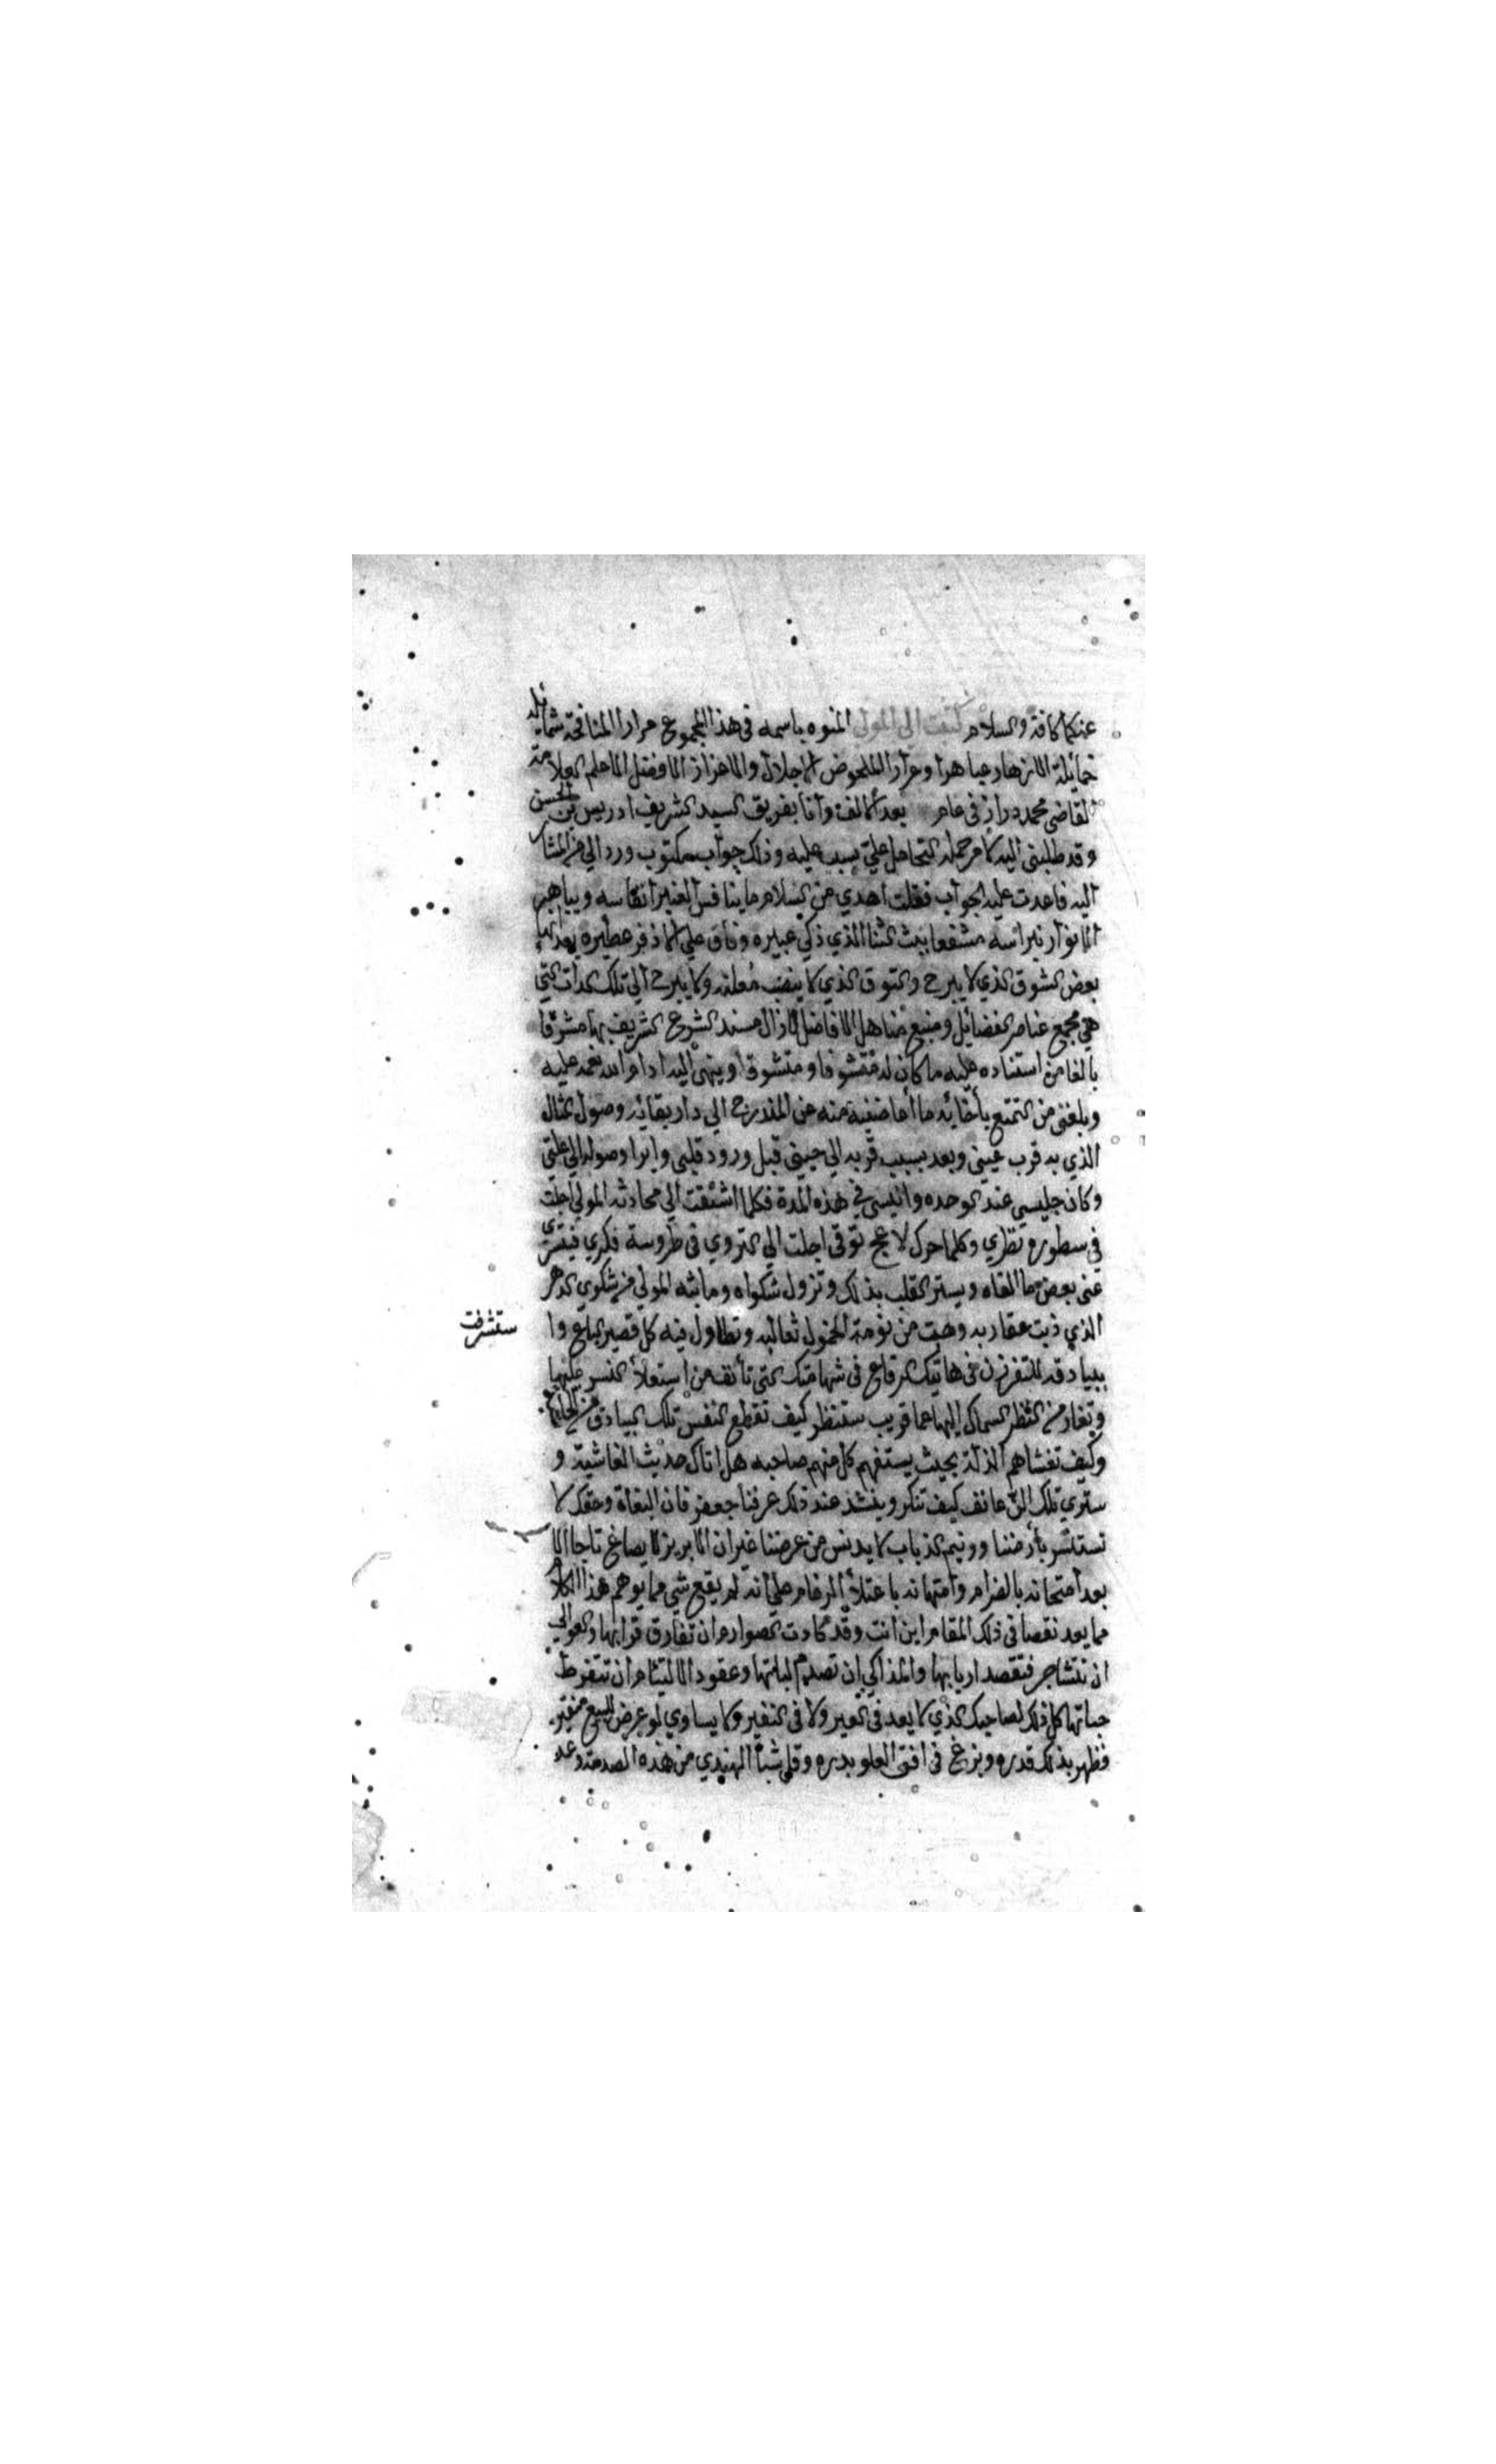 عنكما كافة والسلام كتبت الى المولى المنوه باسمه في هذا المجموع مرارا المنافحة شمايله
خمائيلة الازهار عباهرا وعرارا الملحوض بالاجلال والاعزاز الافضل الاعلم العلامة
القاضي محمد دراز في عام بعد الالف وانا بفريق السيد الشريف ادريس بن الحسن
وقد طلبني اليه لامر حمله التحامل علي بسبب عليه وذلك جواب مكتوب ورد الي من المشار
اليه فاعدت عليه الجواب فقلت اهدي من السلام ما ينافس العنبر انفاسه ويباهي
الانوار نبراسه مشفعا ببث الثنا الذي ذكي عبيره وفاق علي الاذفر عطيره بعد انها
بعض الشوق الذي لا يبرح والتوق الذي لا ينضب معلنه ولا يبرح الي تلك الذات التي
هي مجمع عناصر الفضائيل ومنبع مناهل الافاضل لا زال مسند الشرع الشريف بها مشرقا
بالغا من استناده عليه ما كان له متشوفا ومتشوقا وينهي اليه ادام الله نعمه عليه
وبلغني من التمتع بأخائه ما أفاضنيه منه من المندرج الي دار بقائه وصول المثال
الذي به قرب عيني وبعد بسبب قربه الي حيني قبل ورود قلبي وابرا وصوله الي علتي
وكان جليسي عند الوحده وانيسي في هذه المدة فكلما اشتقت الي محادثه المولي اجلت
في سطوره نظري وكلما حرك لاعج توقي اجلت الي التروي في طروسة فكري فيتسري
عني بعض ما القاه ويستر القلب بذلك وتزول شكواه وما بثه المولي من شكوي الدهر
الذي دبت عقاربه وهبت من نومة الخمول ثعالبه وتطاول فيه كل قصير الباع وا
ستشرفت
بيادقه للتفرزن في هاتيك الرقاع في شهامتك التي تأنف من استعلاء النسر عليها
وتغار من النظر السماك اليها عما قريب ستنظر كيف تقطع النفس تلك البيادق من
وكيف تغشاهم الذلة بحيث يستفهم كل منهم صاحبه هل اتاك حديث الغاشية و
ستري تلك الزعانف كيف تنكر وينشد عند ذلك عرفنا جعفر فان البغاة وحقك لا
تستنسر بأرضنا وونيم الذباب لا يدنس من عرضنا غير ان الابريز لا يصاغ تاجا الا
بعد امتحانه بالضرام وامتهانه باعتلاء الرغام علي انه لم يقع شي مما يوهم هذا الكلام
مما يعد نقصا في ذلك المقام اين انت وقد كادت الصوارم ان تفارق قرابها والعوالي
ان تتشاجر فتقصد اربابها والمذاكي ان تصدم لباتها وعقود الالتيام ان تنفرط
حباتها كل ذلك لصاحبك الذي لا يعد في العير ولا في النفير ولا يساوي لو عرض للبيع
فظهر بذلك قدره وبزغ في افق العلو بدره وقلي شبا الهندي من هذه الصدمة وعد